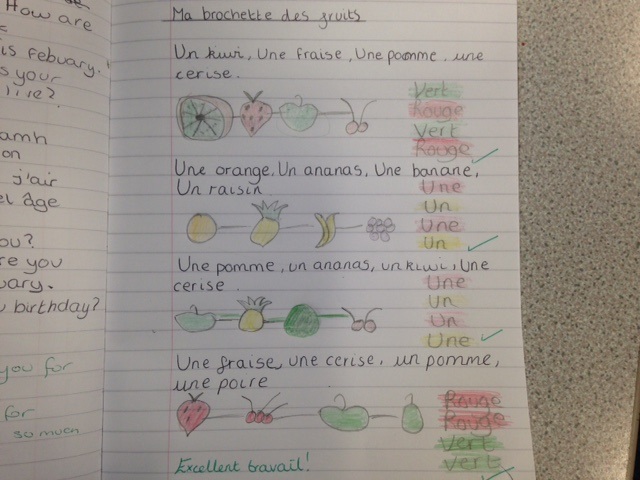 How are
is febuary.
s your
amh
on
j'air
el âge
ou?
re you
uary.
birthday?
you for
for
so much
Ma brochette des fruits
Un kiwi, Une fraise, Une poomme. une
cerise.
Vert
Rouge
Vert
Rouge
Une orange, Un ananas, Une banane,
Un raisin
Une
Un
Une
Un
Une pomme, un ananas, un kiwi, Une
cerise.
Une
Un
Un
Une
Une fraise, une cerise, un pomme,
une poire
Rouge
Rouge
Vert
Vert
Excellent travail!